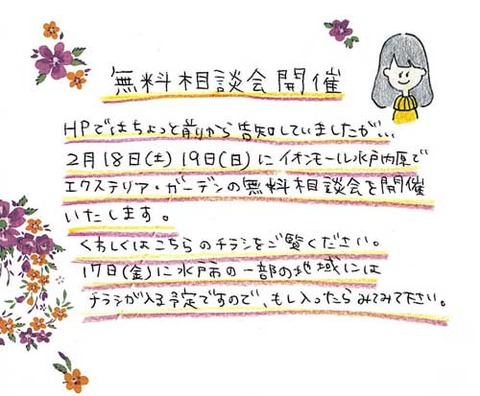 無料相談会開催
HPではちょっと前から告知していましたが...
2月18日(土) 19日(日)にイオンモール水戸内原で
エクステリア・ガーデンの無料相談会を開催
いたします。
くわしくはこちらのチラシをご覧ください。
17日(金)に水戸市の一部の地域には
チラシが入る予定ですので、もし入ったらみてみて下さい。